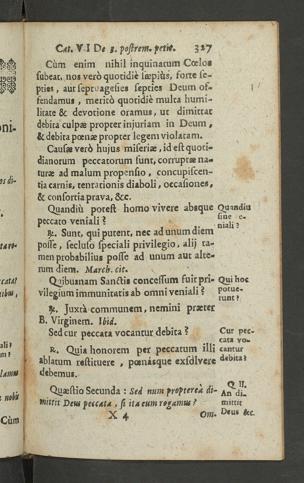 Cat. VI De 5. postrem. petit. 327
Cùm enim nihil inquinatum Cœlos
subeat, nos verò quotidiè sæpiùs, forte se-
pties, aut septuagesies septies Deum of-
fendamus, meritò quotidiè multa humi-
litate & devotione oramus, ut dimittat
debita culpæ propter injuriam in Deum,
& debita pœnæ propter legem violatam.
Causæ verò hujus miseriæ, id est quoti-
dianorum peccatorum sunt, corruptæ na-
turæ ad malum propensio, concupiscen-
tia carnis, tentationis diaboli, occasiones,
& consortia prava, &c.
Quandiù potest homo vivere absque
peccato veniali?
Quandiu
sine ve-
niali?
℞. Sunt, qui putent, nec ad unum diem
posse, secluso speciali privilegio, alij ta-
men probabilius posse ad unum aut alte-
rum diem. March. cit.
Quibusnam Sanctis concessum fuit pri-
vilegium immunitatis ab omni veniali?
Qui hoc
potue-
runt?
℞. Juxtà communem, nemini præter
B. Virginem. Ibid.
Sed cur peccata vocantur debita?
Cur pec-
cata vo-
cantur
debita?
R. Quia honorem per peccatum illi
ablatum restituere, pœnasque exsolvere
debemus.
Quæstio Secunda: Sed num proptereà di-
mittit Deus peccata, si ita eum rogamus?
Q II.
An di-
mittit
Deus &c.
X 4 Om-
oni-
Cùm